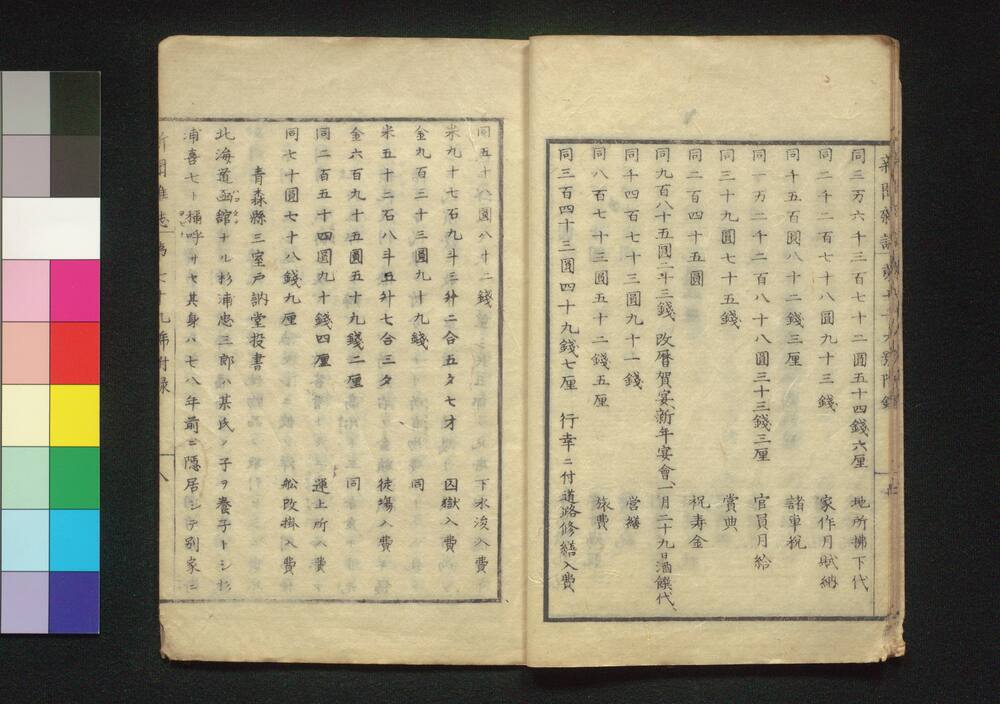 同三万六千三百七十二圓五十四錢六厘 地所拂下代
同二千二百七十八圓九十三錢 家作月賦納
同千五百圓八十二錢三厘 諸車税
同一万二千二百八十八圓三十三錢三厘 官員月給
同三十九圓七十五錢 賞典
同二百四十五圓 祝寿金
同九百八十五圓二十三錢 改暦賀宴新年宴會、一月二十九日酒饌代、
同千四百七十三圓九十一錢 營繕
同八百七十三圓五十二錢五厘 旅費
同三百四十三圓四十九錢七厘 行幸ニ付道路修繕入費
同五十八圓八十二錢 下水浚入費
米九十七石九斗三升二合五夕七才 囚獄入費
金九百三十三圓九十九錢 同
米五十二石八斗五升七合三夕 徒場入費
金六百九十五圓五十九錢二厘 同
同二百五十四圓九十錢四厘 運上所入費
同七十圓七十八錢九厘 舩改掛入費
青森縣三室戸訥堂投書
北海道函館ナル杉浦忠三郎ハ某氏ノ子ヲ養子トシ杉
浦喜七ト稱呼サセ其身ハ七八年前ニ隠居シテ別家ニ